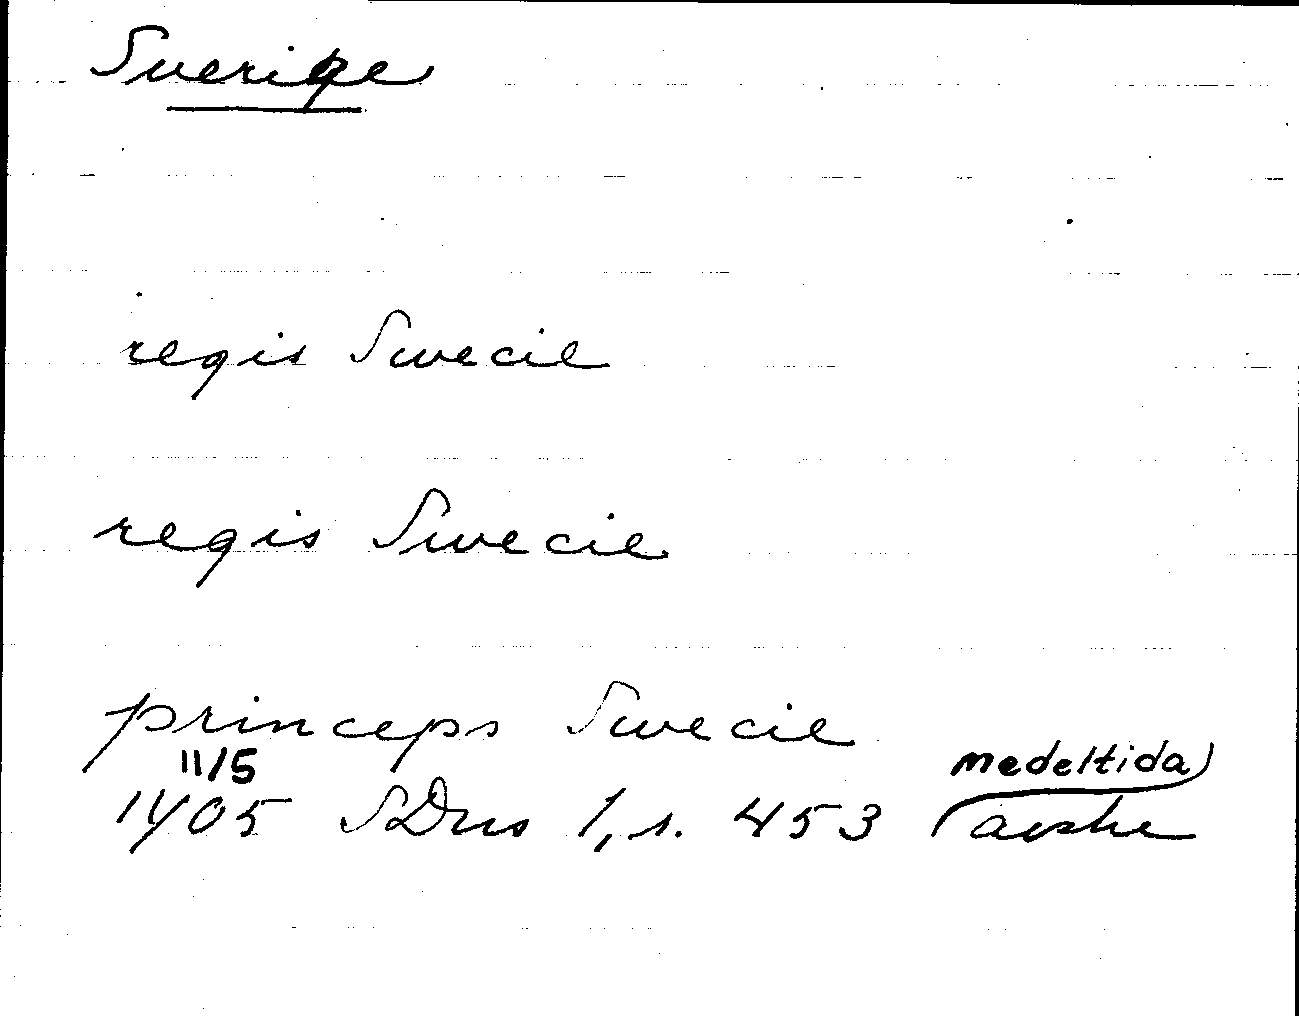 Sverige
regis Swecie
regis Swecie
princeps Swecie
11/5 medeltida)
1405 SDns 1, s. 453 (avskr